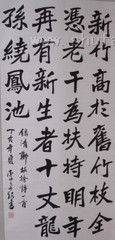 新竹高於舊竹枝全
憑老干為扶持明年
再有新生者十丈龍
孫繞鳳池
錄清鄭板橋詩一首
丁亥年夏